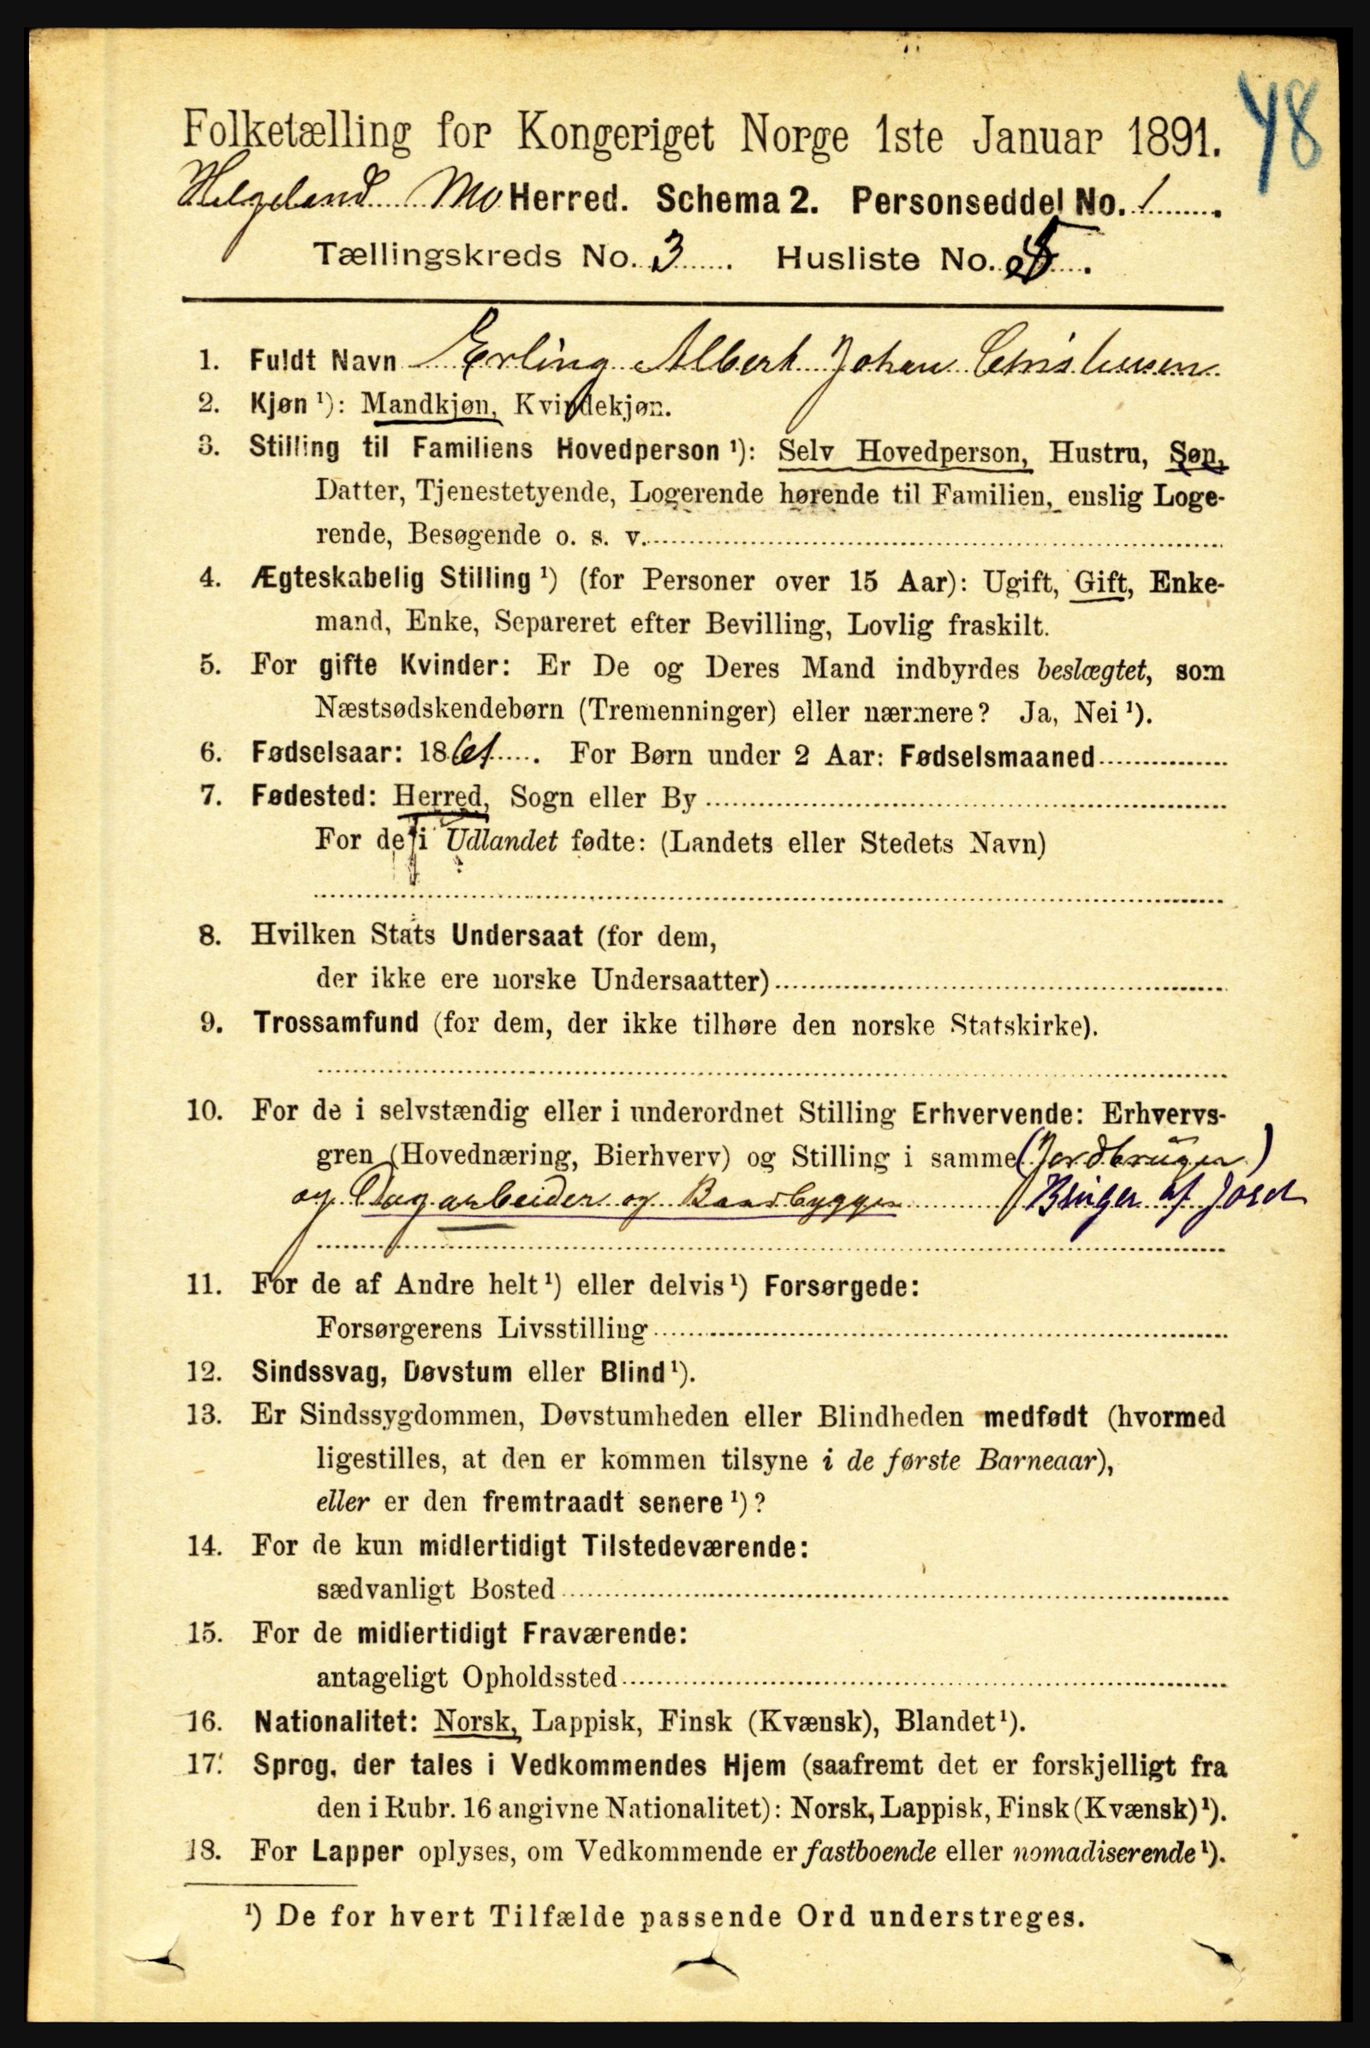 48
Folketælling for Kongeriget Norge 1ste Januar 1891.
Helgeland Mo Herred. Schema 2. Personseddel No. 1.
Tællingskreds No. 3. Husliste No. 5.
1. Fuldt Navn Erling Albert Johan Christensen
2. Kjøn ¹): Mandkjøn, Kvindekjøn.
3. Stilling til Familiens Hovedperson ¹): Selv Hovedperson, Hustru, Søn,
Datter, Tjenestetyende, Logerende hørende til Familien, enslig Loge-
rende, Besøgende o. s. v.
4. Ægteskabelig Stilling ¹) (for Personer over 15 Aar): Ugift, Gift, Enke-
mand, Enke, Separeret efter Bevilling, Lovlig fraskilt.
5. For gifte Kvinder: Er De og Deres Mand indbyrdes beslægtet, som
Næstsødskendebørn (Tremenninger) eller nærmere? Ja, Nei ¹).
6. Fødselsaar: 1861. For Børn under 2 Aar: Fødselsmaaned
7. Fødested: Herred, Sogn eller By
For de i Udlandet fødte: (Landets eller Stedets Navn)
8. Hvilken Stats Undersaat (for dem,
der ikke ere norske Undersaatter)
9. Trossamfund (for dem, der ikke tilhøre den norske Statskirke).
10. For de i selvstændig eller i underordnet Stilling Erhvervende: Erhvervs-
gren (Hovednæring, Bierhverv) og Stilling i samme (Jordbruger)
og Dagarbeider og Baadbygger Bruger af Jord
11. For de af Andre helt ¹) eller delvis ¹) Forsørgede:
Forsørgerens Livsstilling
12. Sindssvag, Døvstum eller Blind ¹).
13. Er Sindssygdommen, Døvstumheden eller Blindheden medfødt (hvormed
ligestilles, at den er kommen tilsyne i de første Barneaar),
eller er den fremtraadt senere ¹)?
14. For de kun midlertidigt Tilstedeværende:
sædvanligt Bosted
15. For de midlertidigt Fraværende:
antageligt Opholdssted
16. Nationalitet: Norsk, Lappisk, Finsk (Kvænsk), Blandet ¹).
17. Sprog, der tales i Vedkommendes Hjem (saafremt det er forskjelligt fra
den i Rubr. 16 angivne Nationalitet): Norsk, Lappisk, Finsk (Kvænsk) ¹).
18. For Lapper oplyses, om Vedkommende er fastboende eller nomadiserende ¹).
¹) De for hvert Tilfælde passende Ord understreges.